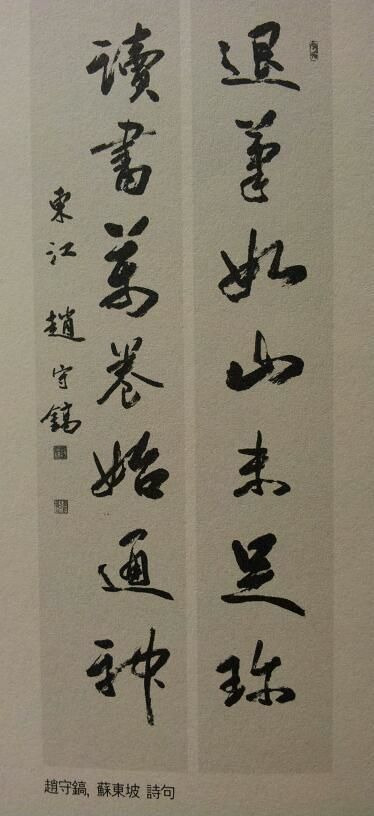 退筆如山未足珍
讀書萬卷始通神
東江 趙守鎬
趙守鎬, 蘇東坡 詩句